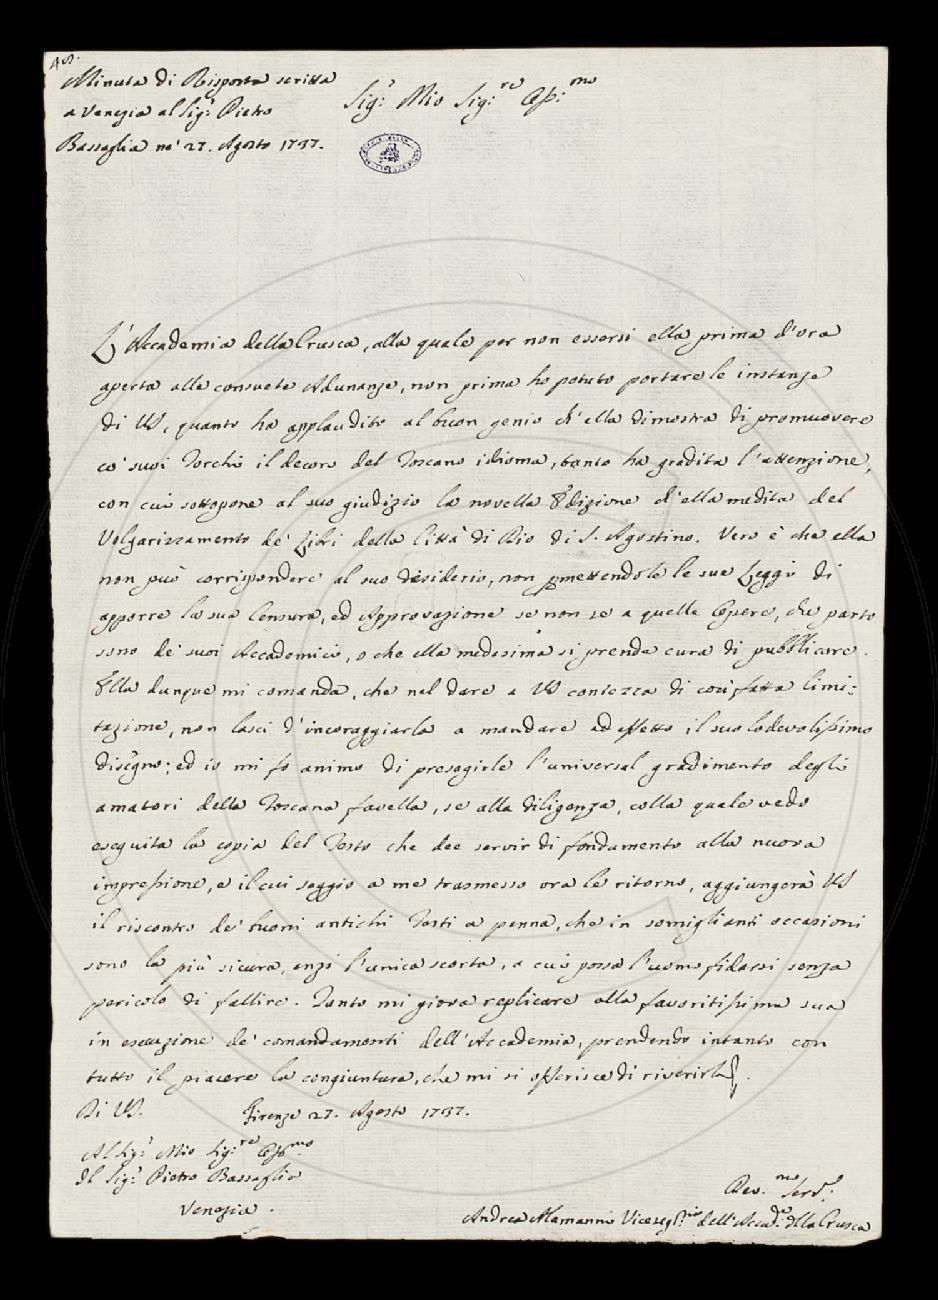 Minuta di Risposta scritta
a Venezia al Sig.r Pietro
Bassaglia ne' 27. Agosto 1737.
Sig.r Mio Sig.re Oss.mo
L'Accademia della Crusca, alla quale per non essersi ella prima d'ora
aperta alle consuete Adunanze, non prima ho potuto portare le instanze
di VS, quanto ha applaudito al buon genio ch'ella dimostra di promuovere
co' suoi Torchi il decoro del Toscano idioma, tanto ha gradita l'attenzione,
con cui sottopone al suo giudizio la novella Edizione ch'ella medita del
Volgarizzamento de' Libri della Città di Dio di S. Agostino. Vero è che ella
non può corrispondere al suo desiderio, non pmettendole le sue Leggi di
apporre la sua Censura, ed Approvazione se non se a quelle Opere, che parto
sono de' suoi Accademici, o che ella medesima si prende cura di pubblicare.
Ella dunque mi comanda, che nel dare a VS contezza di così fatta limi:
tazione, non lasci d'incoraggiarla a mandare ad effetto il suo lodevolissimo
disegno; ed io mi fo animo di presagirle l'universal gradimento degli
amatori della Toscana favella, se alla diligenza, colla quale vedo
eseguita la copia del Testo che dee servir di fondamento alla nuova
impressione, e il cui saggio a me trasmesso ora le ritorno, aggiungerà VS
il riscontro de' buoni antichi Testi a penna, che in somiglianti occasioni
sono la più sicura, anzi l'unica scorta, a cui possa l'uomo fidarsi senza
pericolo di fallire. Tanto mi giova replicare alla favoritissima sua
in esecuzione de' comandamenti dell'Accademia, prendendo intanto con
tutto il piacere la congiuntura, che mi si offerisce di riverirla.
Di VS.
Firenze 27. Agosto 1737.
Al Sig.r Mio Sig.re Oss.mo
Il Sig.r Pietro Bassaglia
Venezia.
Dev.mo Serv.e
Andrea Alamanni Viceseg.rio dell'Accad.a dlla Crusca